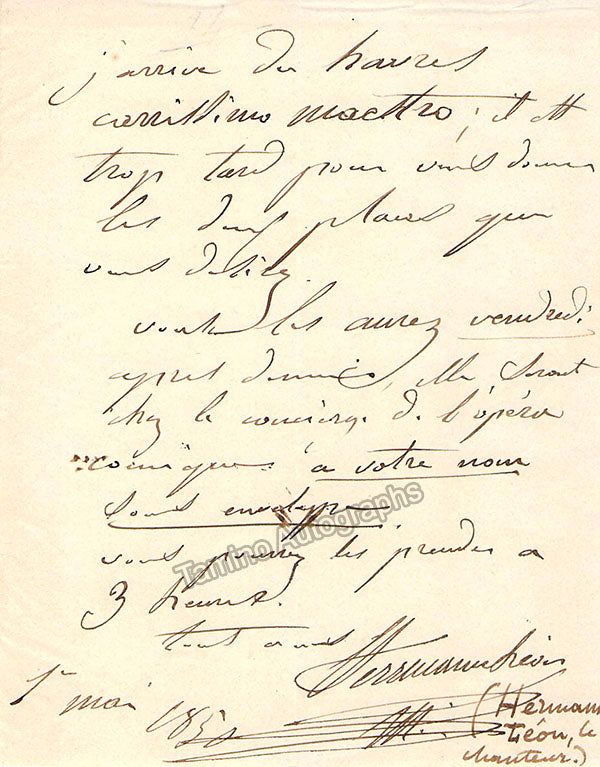 j'arrive du havres
carrissimo maestro; il est
trop tard pour vous donner
les deux places que
vous desirez.
vous les aurez vendredi
apres demain, elles seront
chez le concierge de l'opéra
comique à votre nom
sous enveloppe
vous pourrez les prendre a
3 heures.
tout a vous
Herrmann Léon
1er mai 185
(Hermann
Léon, le
chanteur.)
Tamino Autographs